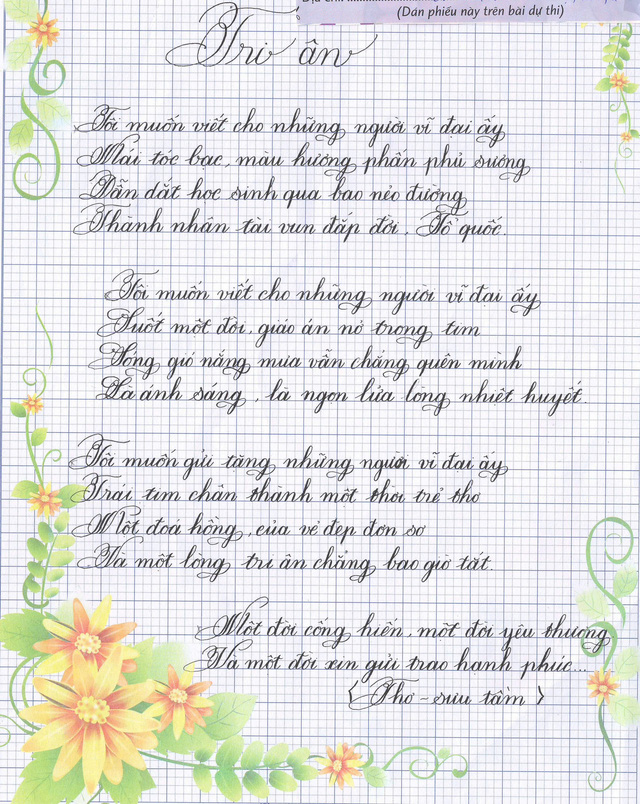 (Dán phiếu này trên bài dự thi)
Tri ân
Tôi muốn viết cho những người vĩ đại ấy
Mái tóc bạc, màu hương phấn phủ sương
Dẫn dắt học sinh qua bao nẻo đường
Thành nhân tài vun đắp đời, Tổ quốc.
Tôi muốn viết cho những người vĩ đại ấy
Suốt một đời, giáo án nở trong tim
Sóng gió nắng mưa vẫn chẳng quên mình
Là ánh sáng, là ngọn lửa lòng nhiệt huyết.
Tôi muốn gửi tặng những người vĩ đại ấy
Trái tim chân thành một thời trẻ thơ
Một đoá hồng, của vẻ đẹp đơn sơ
Và một lòng tri ân chẳng bao giờ tắt.
Một đời cống hiến, một đời yêu thương
Và một đời xin gửi trao hạnh phúc...
(Thơ - sưu tầm)